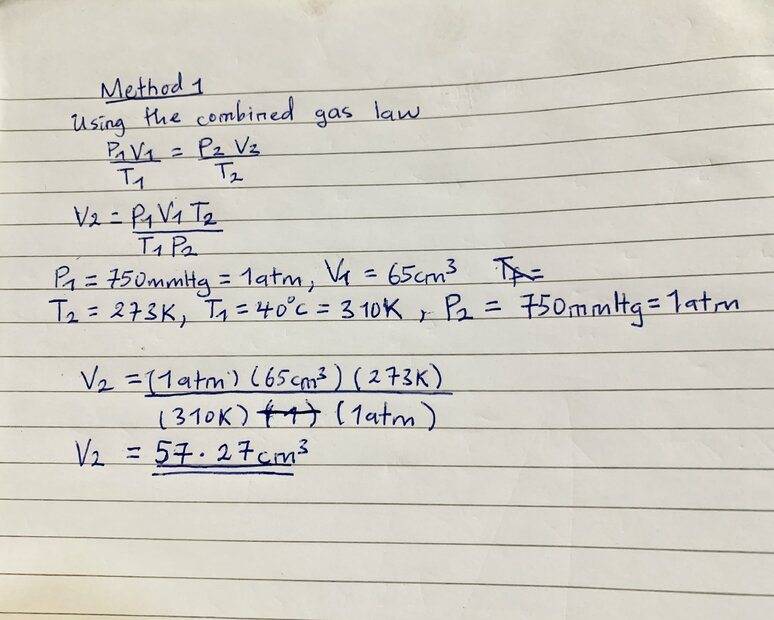 Method 1
Using the combined gas law
P1V1 = P2 V2
T1 T2
V2 = P1 V1 T2
T1 P2
P1 = 750mmHg = 1atm, V1 = 65cm³
T2 = 273K, T1 = 40°C = 310K, P2 = 750mmHg = 1atm
V2 = (1atm) (65cm³) (273K)
(310K) (1) (1atm)
V2 = 57.27cm³